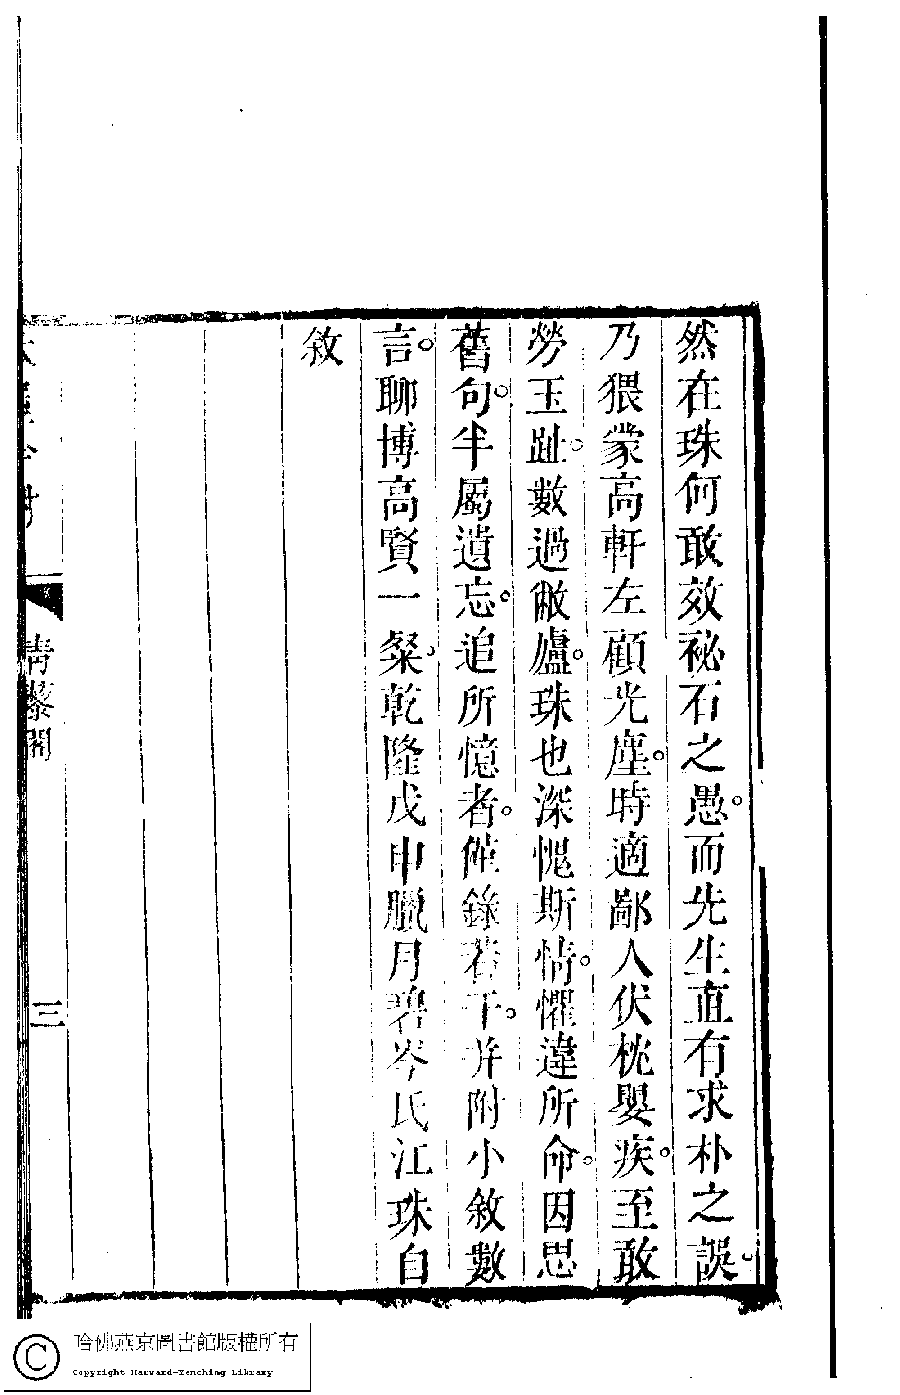 然在珠何敢效祕石之愚。而先生直有求朴之誤。
乃猥蒙高軒左顧光塵。時適鄙人伏枕嬰疾。至敢
勞玉趾。數過敝廬。珠也深愧斯情。懼違所命。因思
舊句。半屬遺忘。追所憶者。僅錄若干。并附小敘數
言。聊博高賢一粲。乾隆戊申臘月碧岑氏江珠自
敘
青藜閣
三
哈佛燕京圖書館版權所有
Copyright Harvard-Yenching Library